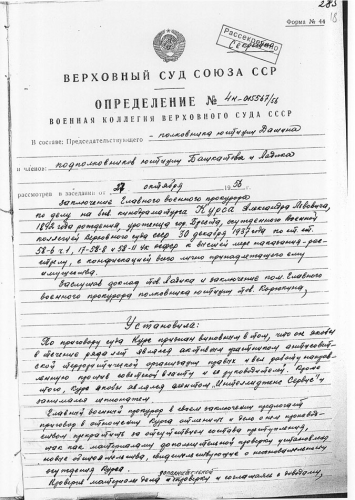 283
18
Форма № 44
Рассекречено
Секретно
ВЕРХОВНЫЙ СУД СОЮЗА ССР
ОПРЕДЕЛЕНИЕ № 4н-015567/56
ВОЕННАЯ КОЛЛЕГИЯ ВЕРХОВНОГО СУДА СССР
В составе: Председательствующего - полковника юстиции
и членов: подполковников юстиции Башкатова и
рассмотрев в заседании от 27 октября 1956
заключение Главного военного прокурора
по делу на быв кинодраматурга Курса Александра Львовича,
1892 года рождения, уроженца гор. Бреста, осужденного Военной
коллегией Верховного суда СССР 30 декабря 1937 года по ст. ст.
58-6 ч. 1, 17-58-8 и 58-11 УК РСФСР к высшей мере наказания - рас-
стрелу, с конфискацией всего лично принадлежащего ему
имущества.
Заслушав доклад тов. и заключение пом. Главного
военного прокурора полковника юстиции тов.
Установила:
По приговору суда Курс признан виновным в том, что он якобы
в течение ряда лет являлся активным участником антисовет-
ской террористической организации правых и вел работу направ-
ленную против советской власти и ее руководителей. Кроме
того, Курс якобы являлся агентом „Интеллидженс Сервис" и
занимался шпионажем.
Главный военный прокурор в своем заключении предлагает
приговор в отношении Курса отменить и дело о нем производ-
ством прекратить за отсутствием состава преступления,
так как материалами дополнительной проверки установлены
новые обстоятельства, свидетельствующие о неосновательном
осуждении Курса.
Проверив материалы дела и проверки и соглашаясь с доводами,